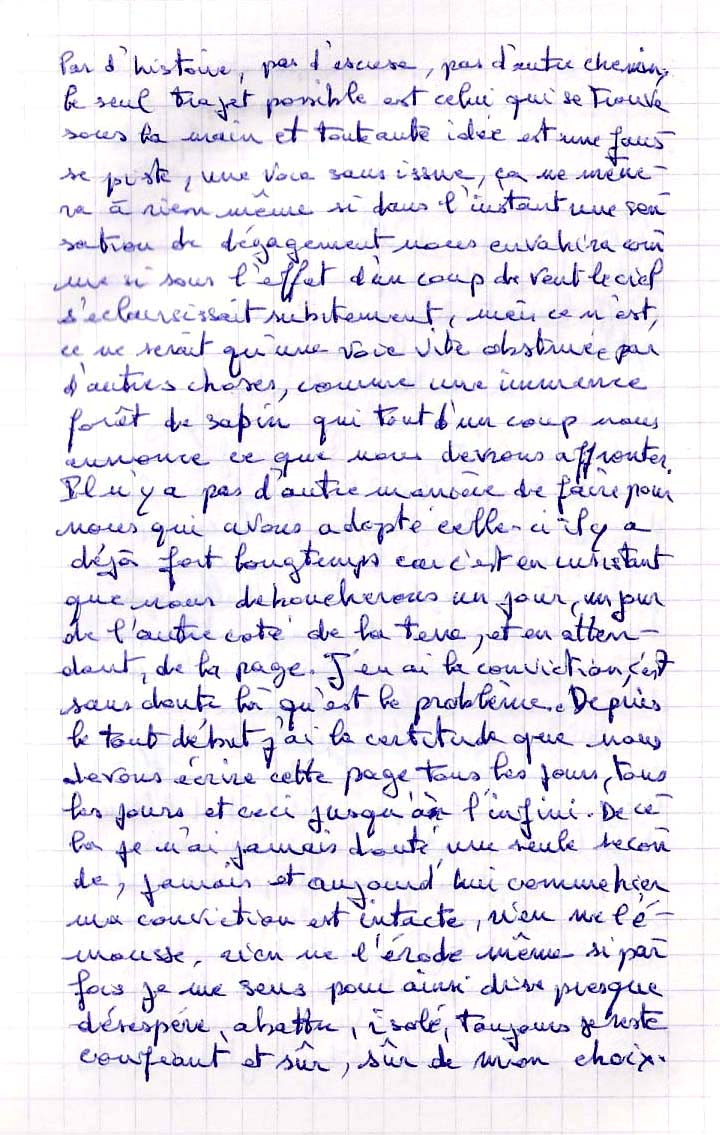 Pas d'histoire, pas d'excuse, pas d'autre chemin,
le seul trajet possible est celui qui se trouve
sous la main et toute autre idée est une faus-
se piste, une voie sans issue, ça ne mène-
ra à rien même si dans l'instant une sen
sation de dégagement nous envahira com
me si sous l'effet d'un coup de vent le ciel
s'eclaircissait subitement, mais ce n'est,
ce ne serait qu'une voie vite obstruée par
d'autres choses, comme une immence
forêt de sapin qui tout d'un coup nous
annonce ce que nous devrons affronter.
Il n'y a pas d'autre manière de faire pour
nous qui avons adopté celle-ci il y a
déjà fort longtemps car c'est en insistant
que nous deboucherons un jour, un jour
de l'autre coté de la terre, et en atten-
dant, de la page. J'en ai la conviction, c'est
sans doute là qu'est le problème. Depuis
le tout début j'ai la certitude que nous
devons écrire cette page tous les jours, tous
les jours et ceci jusqu'à l'infini. De ce
la je n'ai jamais douté, une seule secon
de, jamais et aujourd'hui comme hier
ma conviction est intacte, rien ne l'é-
mousse, rien ne l'érode même si par
fois je me sens pour ainsi dire presque
désespéré, abattu, isolé, toujours je reste
confiant et sûr, sûr de mon choix.